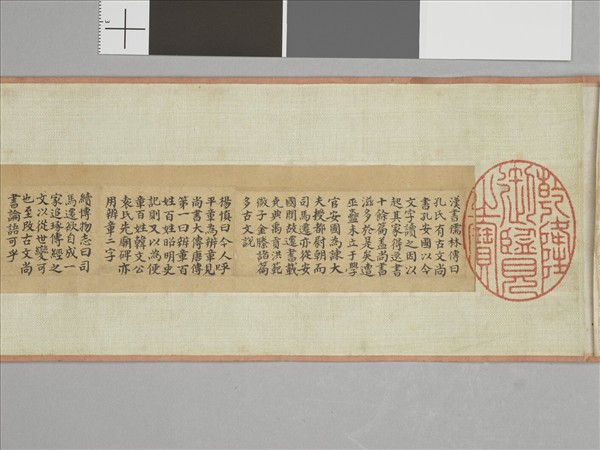 乾隆
御覽
之寶
漢書儒林傳曰
孔氏有古文尚
書孔安國以今
文字讀之因以
起其家得逸書
十餘篇蓋尚書
滋多於是矣遭
巫蠱未立于學
官安國為諫大
夫授都尉朝而
司馬遷亦從安
國問故遷書載
堯典禹貢洪範
微子金縢諸篇
多古文說
楊慎曰今人呼
平章為辨章見
尚書大傳唐傳
第一曰辨章百
姓百姓昭明史
記則又以為便
章百姓韓文公
袁氏先廟碑亦
用辨章二字
續博物志曰司
馬遷欲自成一
家追琢傳經之
文以從世變可
也至改古文尚
書論語可乎